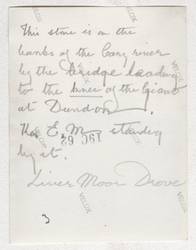 This stone is on the
banks of the Cary river
by the bridge leading
to the of the Giant
at Dundon.
Hon E. M standing
29 OCT
by it.
Liver Moor Drove
3